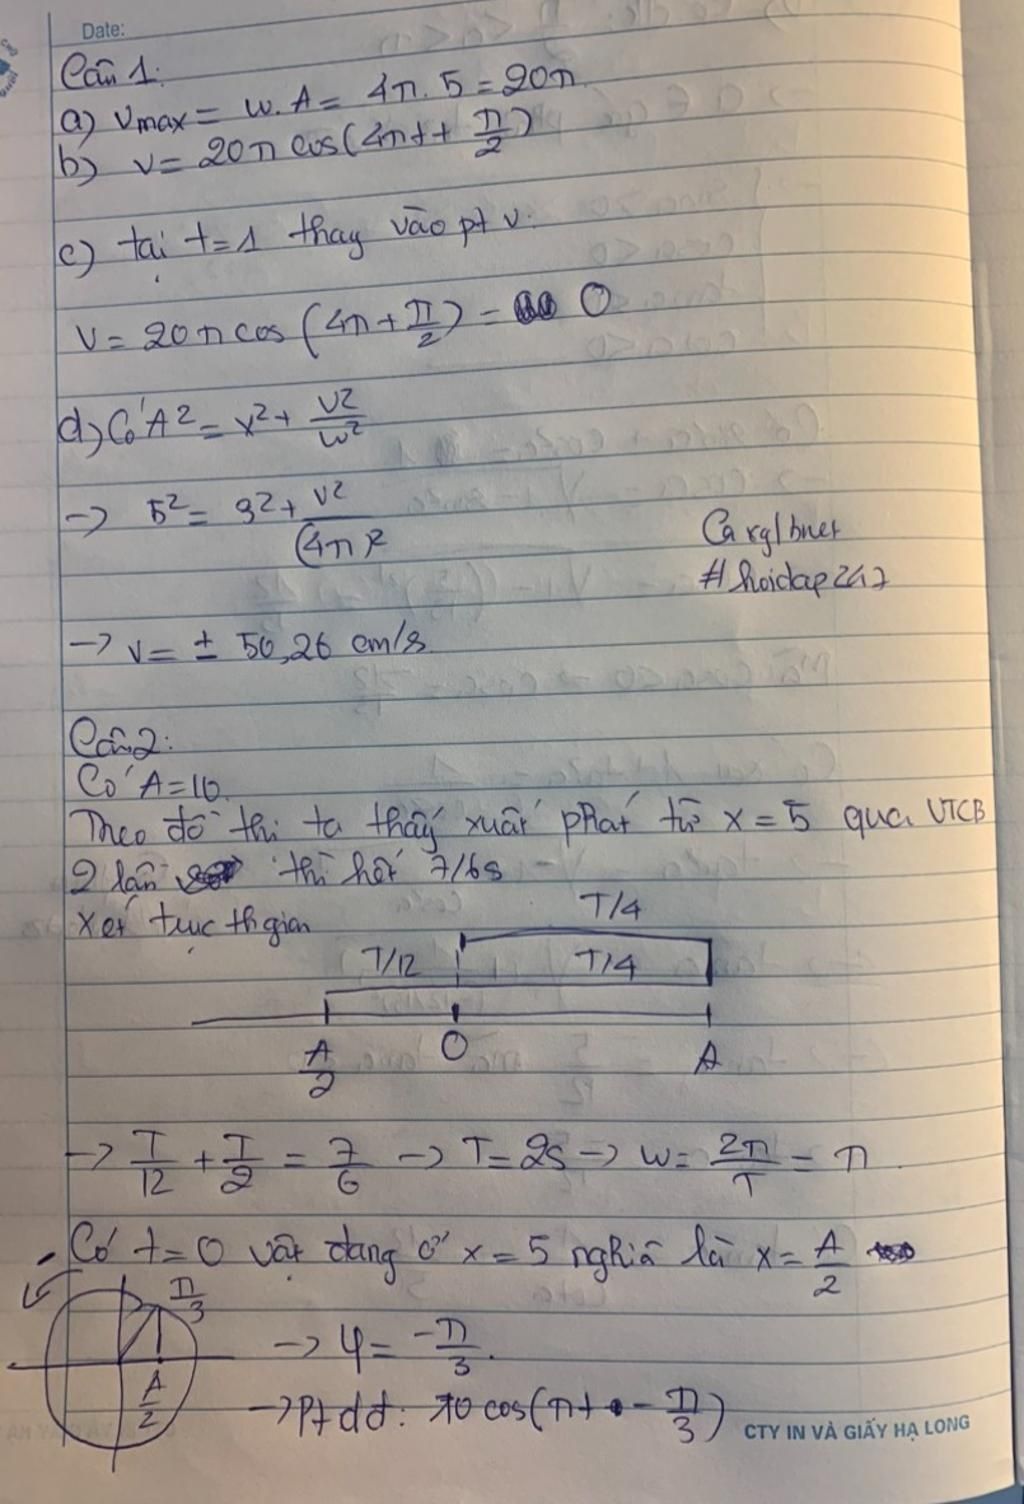 Date:
Câu 1:
a) Vmax = w.A = 4π.5 = 20π
b) v = 20π cos(4πt + π/2)
c) tại t=1 thay vào pt v.
V = 20π cos(4π + π/2) = 0
d) Có A² = x² + v²/w²
-> 5² = 3² + v²/(4π)²
-> v = ± 50,26 cm/s
Câu 2:
Có A = 10
Theo đồ thị ta thấy xuất phát từ x = 5 qua VTCB
2 lần thì hết 7/6s
Xét trục thgian
T/4
T/12 T/4
A/2 O A
-> T/12 + T/2 = 7/6 -> T = 2s -> w = 2π/T = π
Có t=0 vật đang ở x = 5 nghĩa là x = A/2
π/3
A/2
-> φ = -π/3
-> Pt dđ: 10 cos(πt - π/3)
#hoidap247
CTY IN VÀ GIẤY HẠ LONG